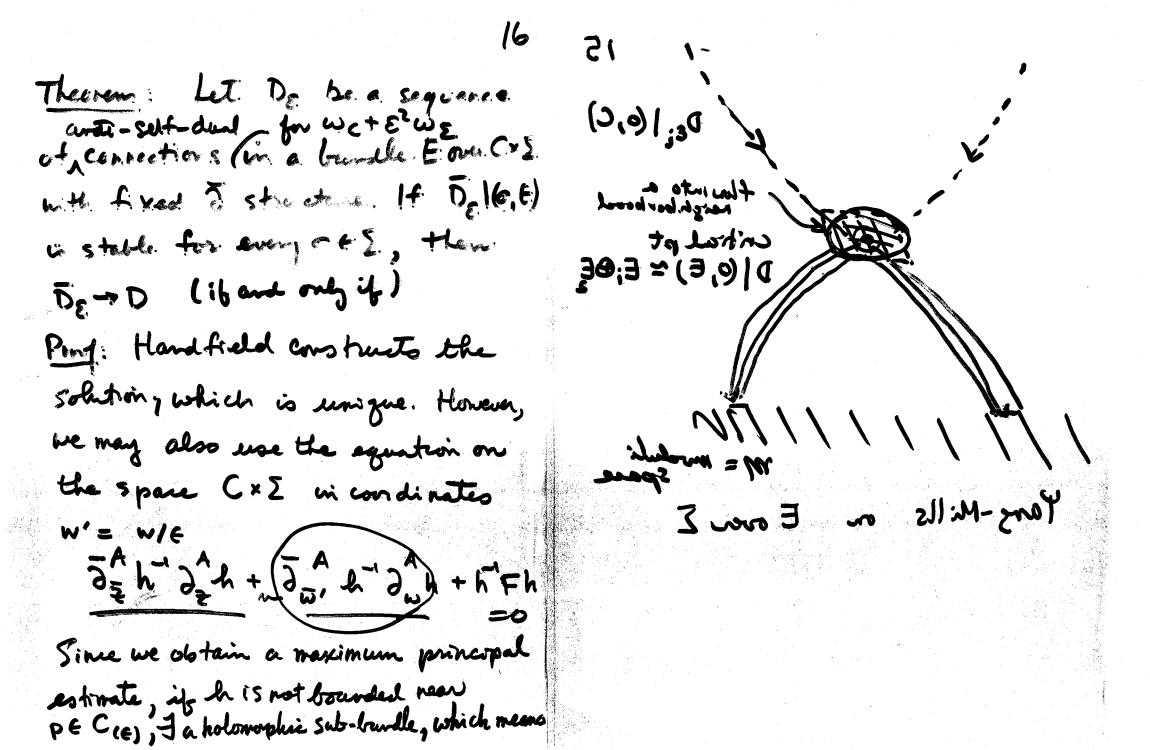 16
Theorem: Let D_ε be a sequence
anti-self-dual for ω_C + ε²ω_Σ
of ∧ connections (in a bundle E over C×Σ
with fixed ∂̄ structure. If D̄_ε|(σ,E)
is stable for every σ∈Σ, then
D̄_ε → D (if and only if)
Proof: Handfield constructs the
solution, which is unique. However,
we may also use the equation on
the space C×Σ in coordinates
w' = w/ε
∂̄^A_z̄ h⁻¹ ∂^A_z h + ∂̄^A_w̄' h⁻¹ ∂^A_w h + h⁻¹Fh
=0
Since we obtain a maximum principal
estimate, if h is not bounded near
p∈C_(ε), ∃ a holomorphic sub-bundle, which means
15
D_εj|(σ,C)
flow into a
neighborhood
critical pt
D|(σ,E) ≈ E_1⊕E_2
M = moduli
space
Yang-Mills on E over Σ